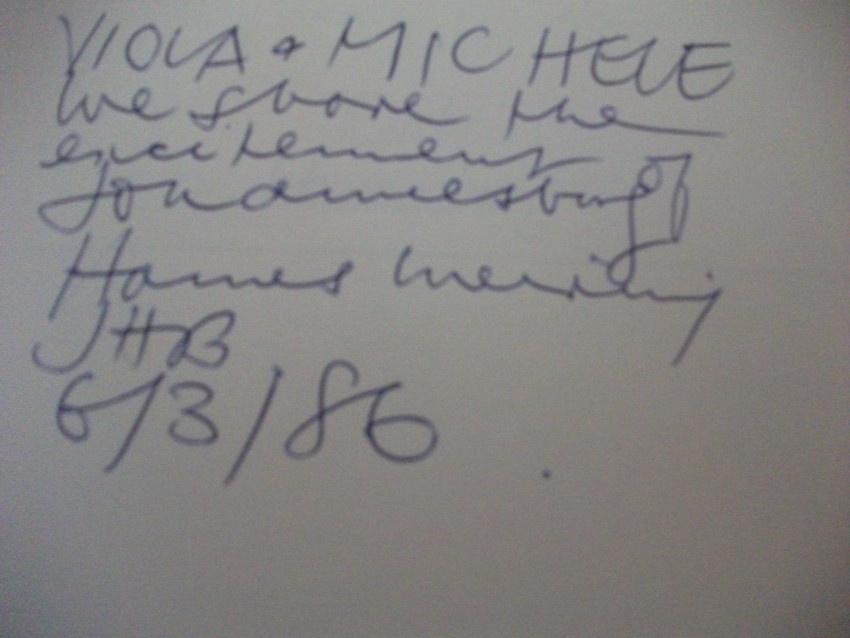 VIOLA & MICHELE
We share the
excitement of
Johannesburg
Hannes Meiring
JHB
6/3/86